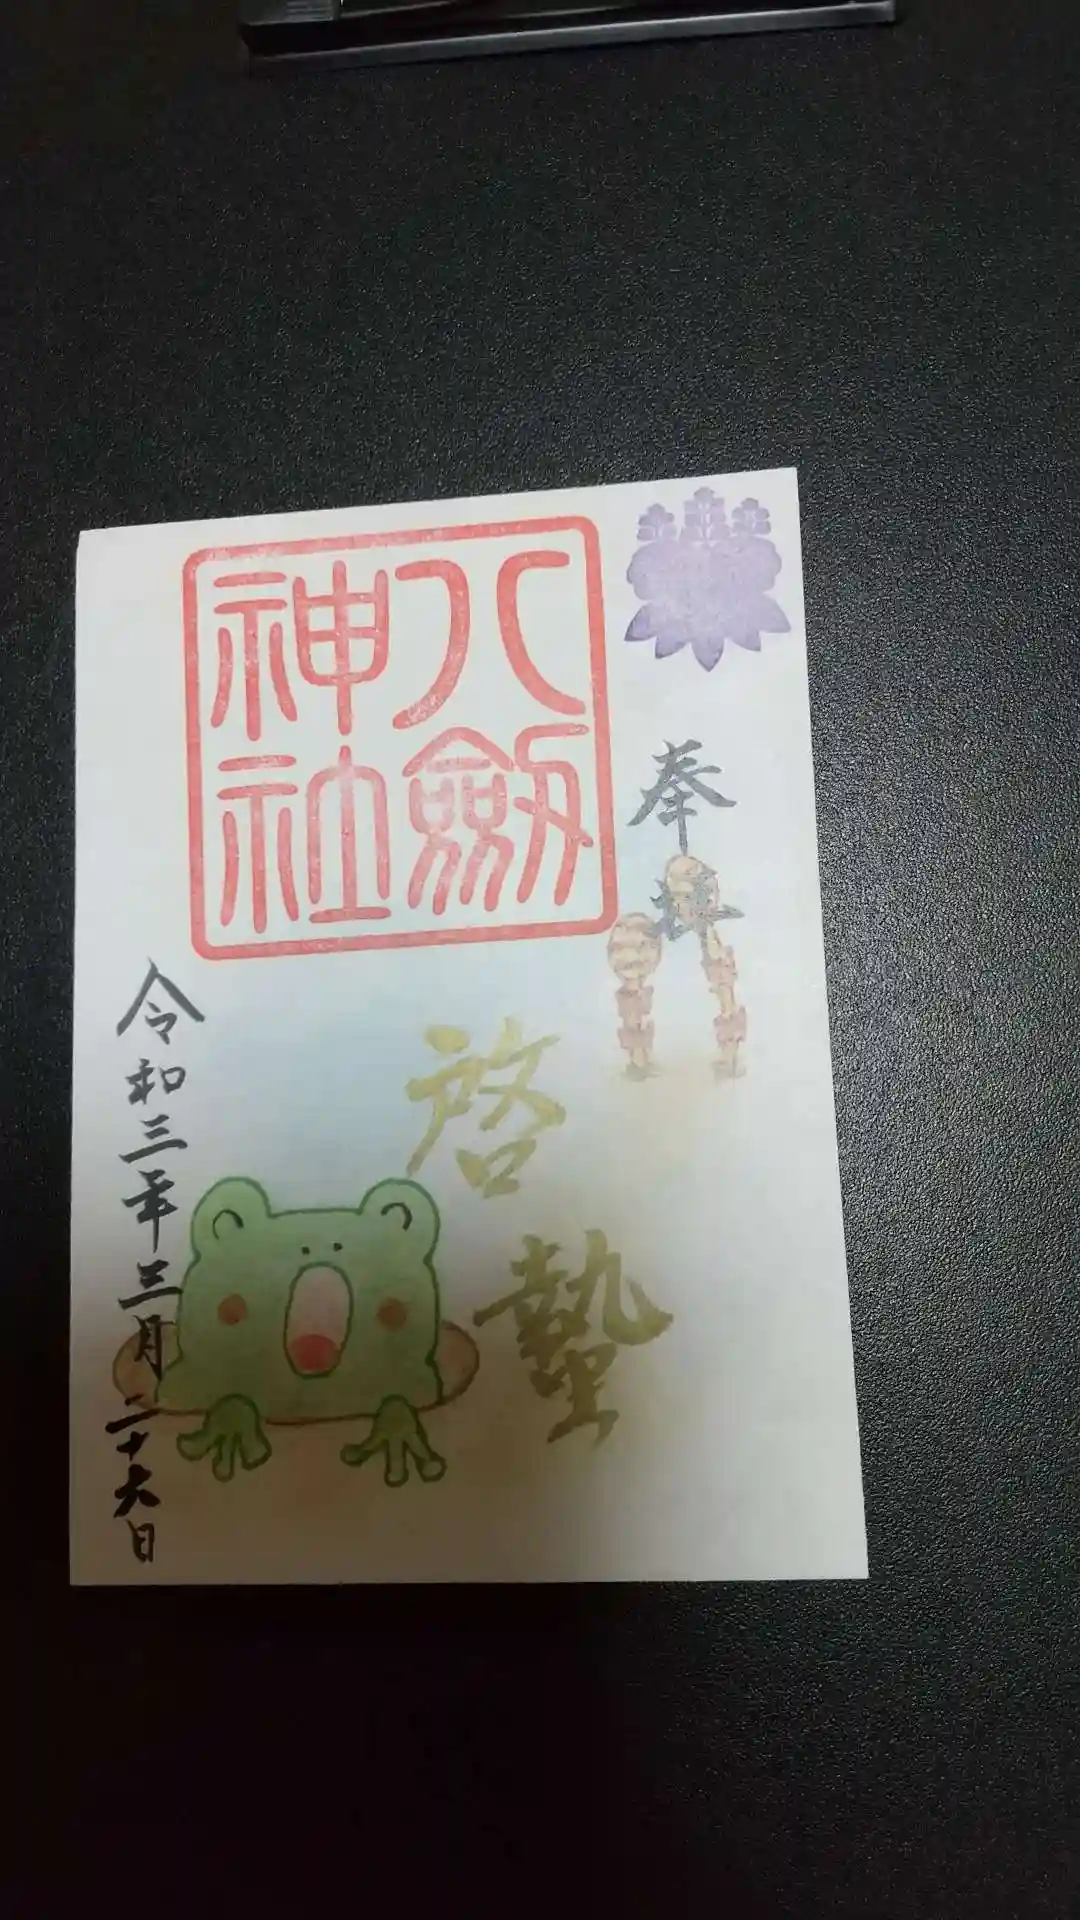 奉拝
八劔神社
啓蟄
令和三年三月二十六日